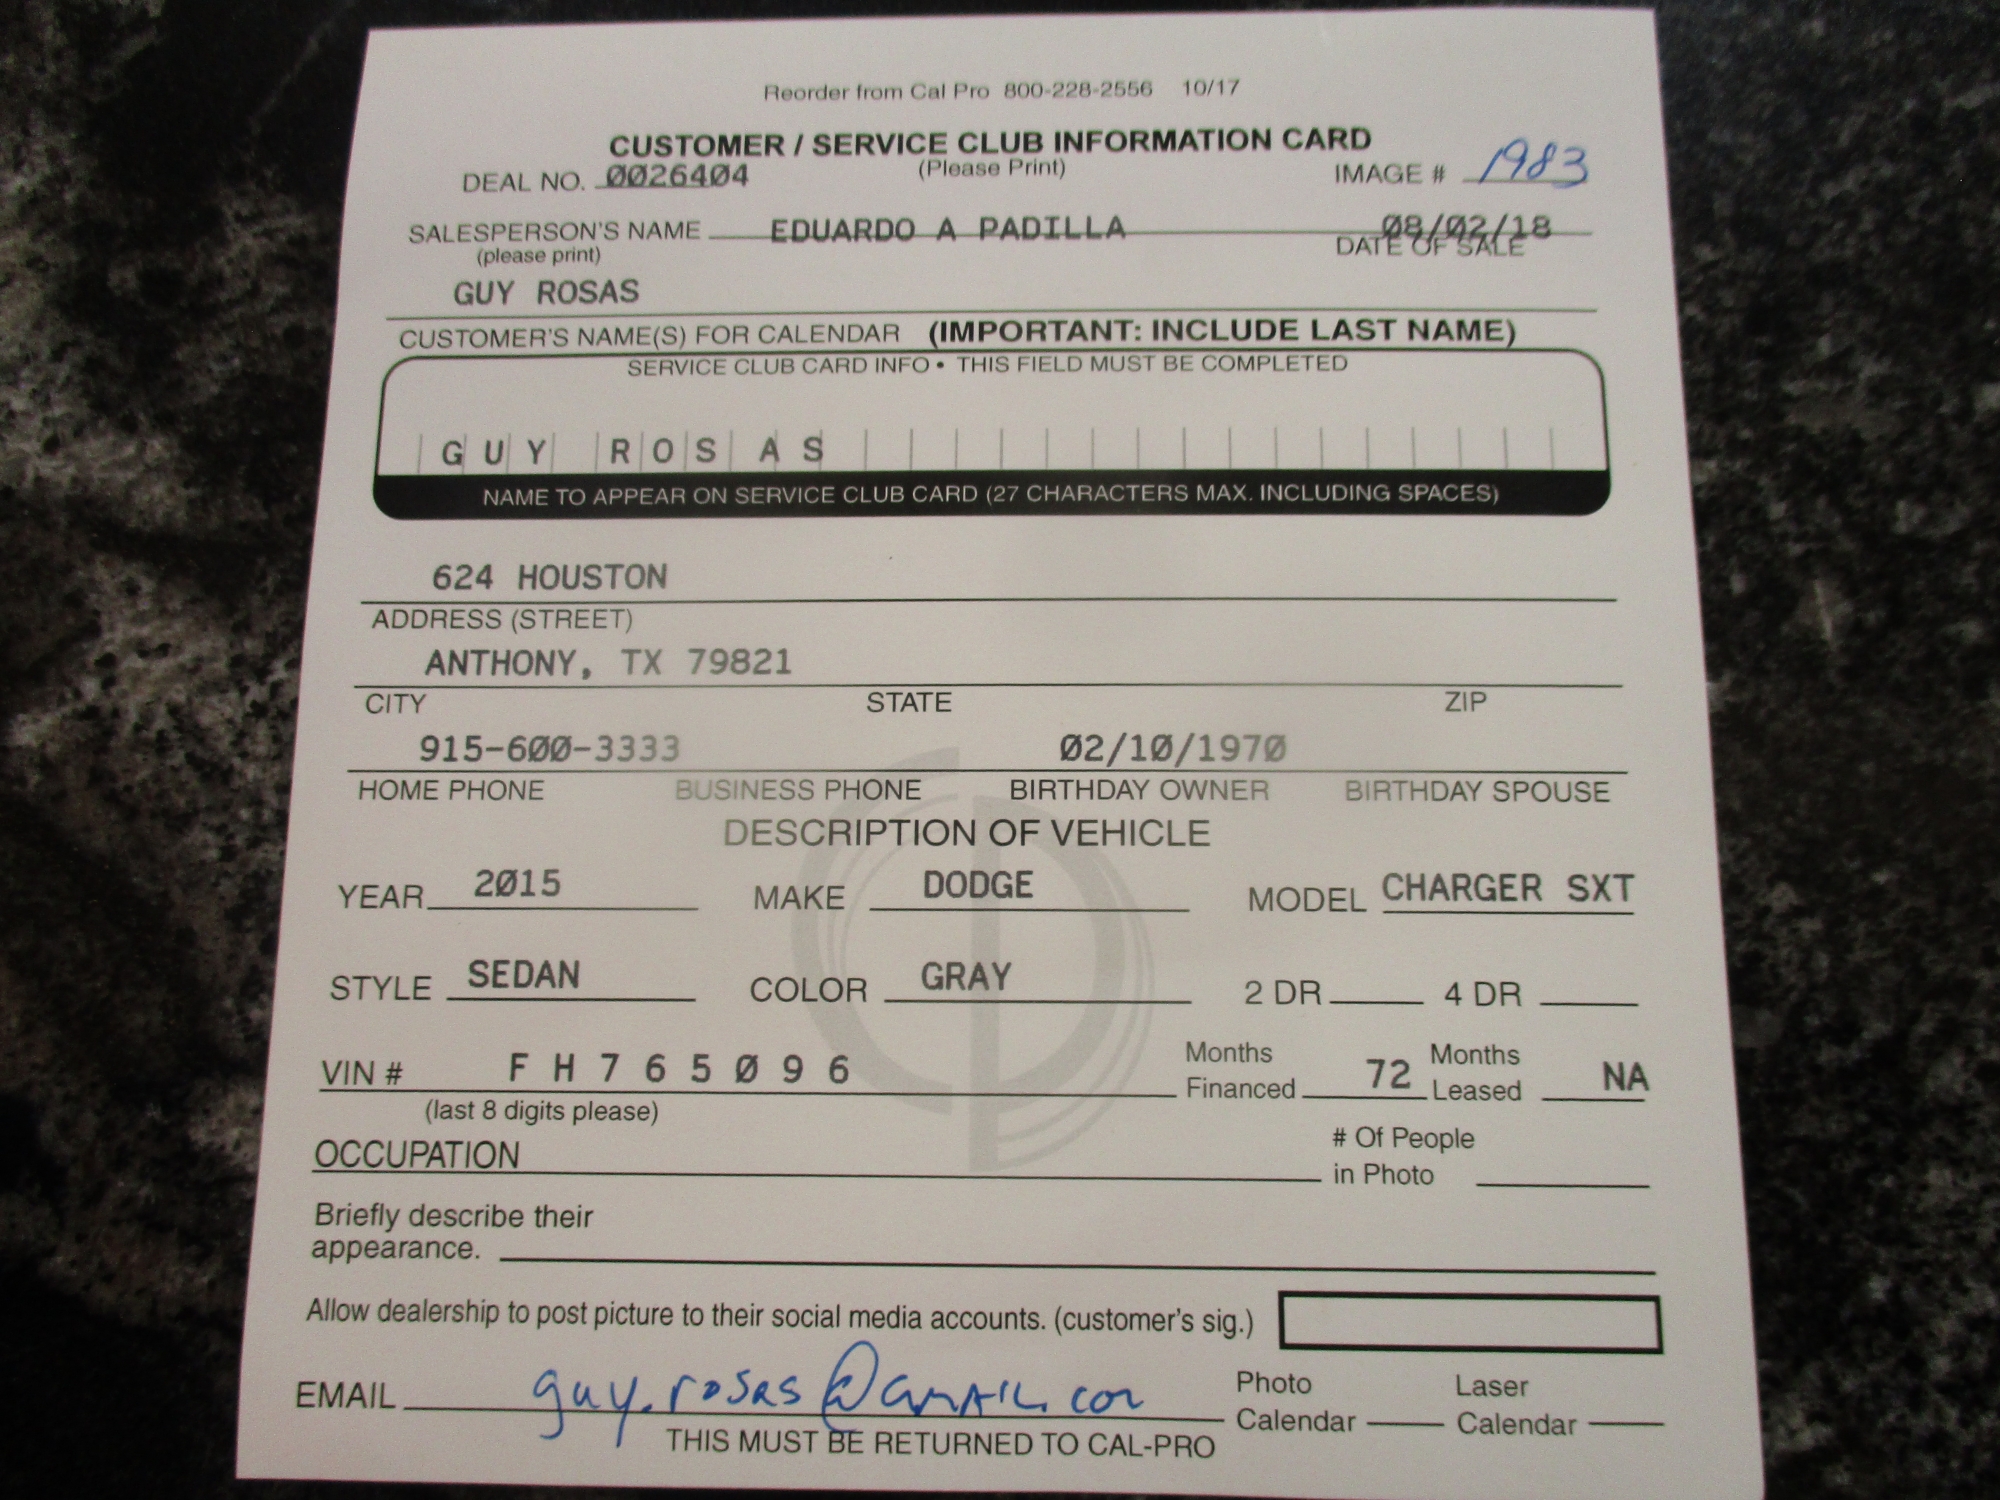 Reorder from Cal Pro 800-228-2556 10/17
CUSTOMER / SERVICE CLUB INFORMATION CARD
DEAL NO. 0026404 (Please Print) IMAGE # 1983
SALESPERSON'S NAME EDUARDO A PADILLA 08/02/18
(please print) DATE OF SALE
GUY ROSAS
CUSTOMER'S NAME(S) FOR CALENDAR (IMPORTANT: INCLUDE LAST NAME)
SERVICE CLUB CARD INFO • THIS FIELD MUST BE COMPLETED
GUY ROSAS
NAME TO APPEAR ON SERVICE CLUB CARD (27 CHARACTERS MAX. INCLUDING SPACES)
624 HOUSTON
ADDRESS (STREET)
ANTHONY, TX 79821
CITY STATE ZIP
915-600-3333 02/10/1970
HOME PHONE BUSINESS PHONE BIRTHDAY OWNER BIRTHDAY SPOUSE
DESCRIPTION OF VEHICLE
YEAR 2015 MAKE DODGE MODEL CHARGER SXT
STYLE SEDAN COLOR GRAY 2 DR 4 DR
VIN # F H 7 6 5 0 9 6 Months Financed 72 Months Leased NA
(last 8 digits please)
OCCUPATION # Of People in Photo
Briefly describe their
appearance.
Allow dealership to post picture to their social media accounts. (customer's sig.)
EMAIL guy.rosas@GMAIL.com Photo Calendar Laser Calendar
THIS MUST BE RETURNED TO CAL-PRO